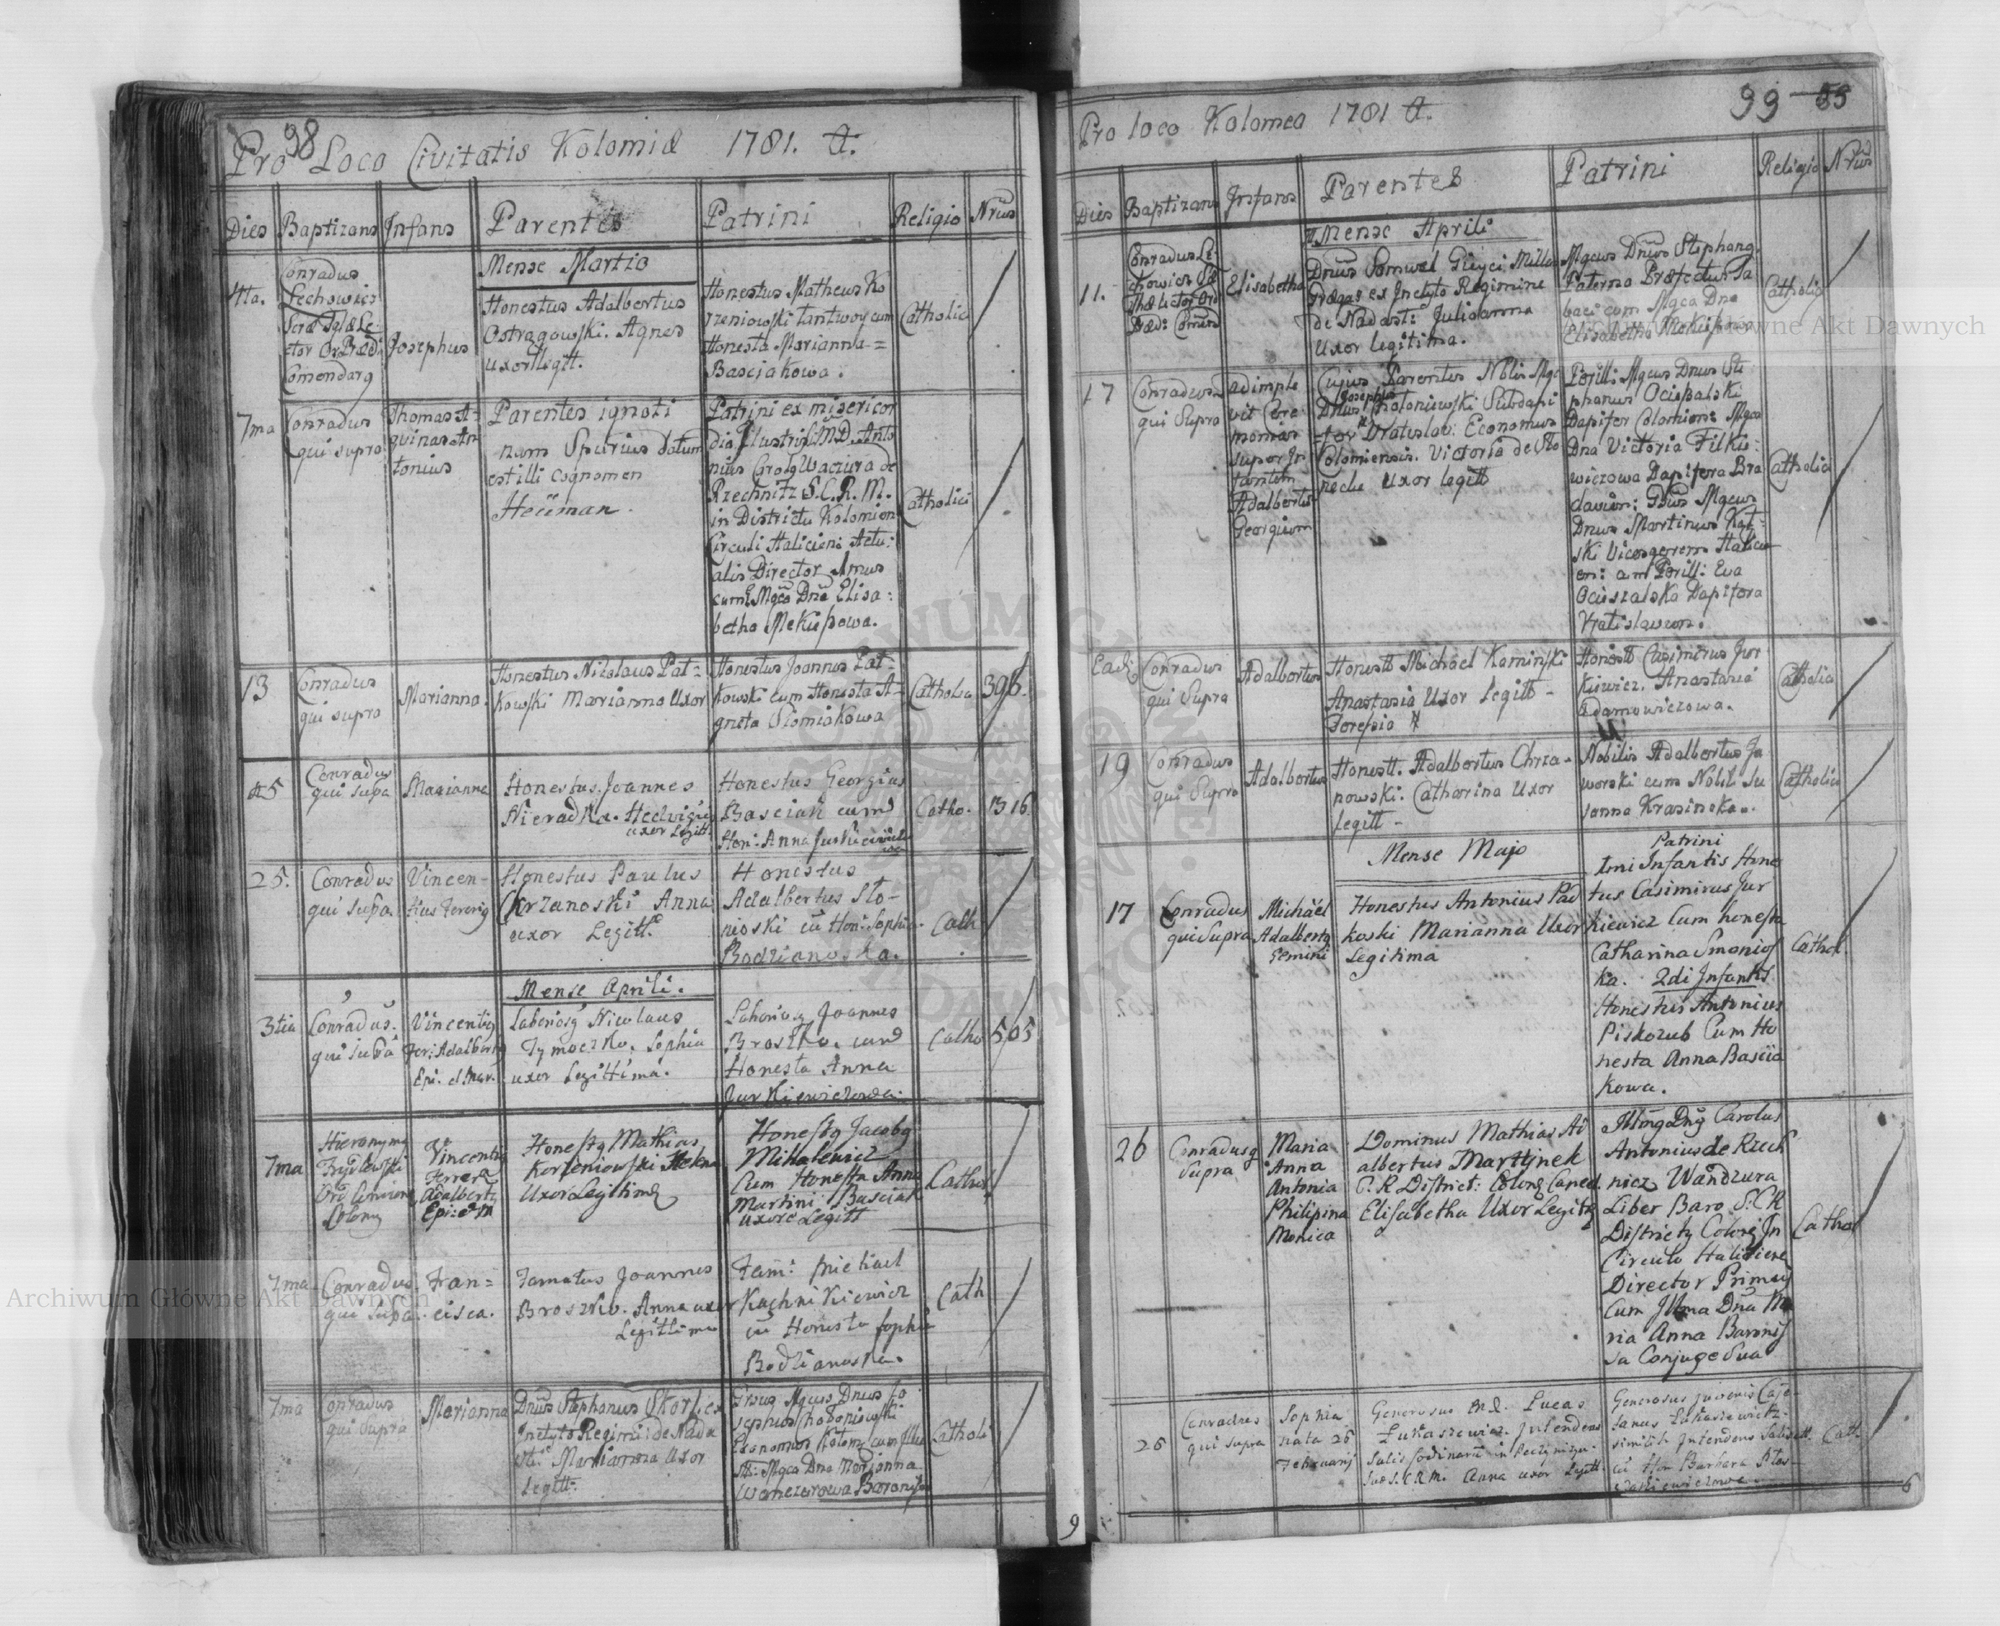 98
Pro Loco Civitatis Kolomiæ 1781. A.
Dies Baptizans Infans Parentes Patrini Religio Nrus
Mense Martio
4ta.
Conradus
Lechowicz
ctor Or Prædi
Josephus
Honestus Adalbertus
Ostragowski. Agnes
uxor legitt.
Honestus Matheus Ko
rzeniowski cum
Honesta Marianna =
Basciakowa.
Catholici
7ma
Conradus
qui supra
Thomas A-
quinas An
tonius
Parentes ignoti
nam Spurius datum
est illi cognomen
Heüman.
Patrini ex misericor
dia
nius Carolg Waczura de
Rzechnitz S.C.R.M.
in Districtu Kolomien
Circuli Halicien: Actu:
alis Director
cum Mgca Dna Elisa:
betha Meküszowa.
Catholici
13
Conradus
qui supra
Marianna.
Honestus Nikolaus Pat-
kowski Marianna Uxor
Honestus Joannes Pat-
kowski cum Honesta A-
gneta Slomiakowa
Catholici
396.
25
Conradus
qui supa
Marianna
Honestus Joannes
Nieradka. Hedvigis
uxor Legitt
Honestus Georgius
Basciak cum
Hon: Anna
Catho.
1316
25.
Conradus
qui supa
Vincen-
tius Fererig
Honestus Paulus
Chrzanoski Anna
uxor Legitt.
Honestus
Adalbertus Sto-
nioski cū Hon: Sophia
Bodzianoska.
Cath
Mense Aprili.
3tia
Conradus
qui supa
Vincentig
Fer: Adalbertg
Epi. et Mar.
Laboriosg Nicolaus
Tymoczko. Sophia
uxor Legittima.
Laboriosg Joannes
Broszko. cum
Honesta Anna
Jurkiewiczowa.
Catho
505
7ma
Hieronymg
Vincentig
Ferrera
Adalbertg
Epi: et M
Honestg Mathias
Korzeniowski Helena
Uxor Legitima
Honestg Jacobg
Mikalewicz
Cum Honesta Anna
Martini Basciak
uxore Legitt
Cathol
7ma
Conradus
qui supa
Fran=
cisca.
Famatus Joannes
Broszko. Anna uxor
Legittima
Fam: Michael
Kachnikiewicz
cū Honesta Sophia
Bodzianoska.
Cath
7ma
Conradus
qui Supra
Marianna
Dnus Stephanus Skorl. ex
Inclyto Regimi: de Nada
sti: Marianna Uxor
Legitt:
Mgcus Dnus Jo
sephus Chotoniowski
Economus Kolom: cum Illu
sti: Mgca Dna Marianna
Wanczurowa Baronissa
Catholi
99 35
Pro loco Kolomea 1781 A.
Dies Baptizans Infans Parentes Patrini Religio Nrus
Mense Aprili
11.
Conradus Le-
chowicz Sæ
Elisabetha
Dnus Samuel Giüyci Miller
Grægar ex Inclyto Regimine
de Nadast: Julianna
Uxor legitima.
Mgcus Dnus Stephang
Paterno Præfectus Ta
baci cum Mgca Dna
Elisabetha Mekuszowa
Catholici
17
Conradus
qui Supra
adimple
vit Cere
monias
super In
fantem
Adalbertg
Georgium
Cujus Parentes Nblis Mgc
Josephus
Dnus Chotoniewski Subdapi
fer Vratislav: Economus
Colomiensis. Victoria de Sto
necki Uxor legitt
Perill: Mgcus Dnus Ste
phanus Ocieszalski
Dapifer Colomien: Mgca
Dna Victoria Filki:
wiczowa Dapifera Bra
clavien: Gsus Mgcus
Dnus Martinus Kat:
ski Vicesgerens Halici
en: cum Perill: Eva
Ocieszalska Dapifera
Vratislavien.
Catholici
Eadg
Conradus
qui Supra
Adalbertus
Honestt Michael Kaminski
Anastasia Uxor Legitt -
Honestt Casimirus Jur
kiewicz. Anastasia
Adamowiczowa.
Catholici
19
Conradus
qui Supra
Adalbertus
Honestt. Adalbertus Chrza-
nowski. Catharina Uxor
legitt -
Nobilis Adalbertus Ja
worski cum Nobil Su
sanna Krasinska.
Catholici
Mense Majo
17
Conradus
qui Supra
Michäel
Adalbertg
Gemini
Honestus Antonius Pad
koski Marianna Uxor
Legitima
Patrini
1mi Infantis Hones
tus Casimirus Jur
kiewicz Cum honesta
Catharina Smonios
ka. 2di Infantis
Honestus Antonius
Piskozub Cum Ho
nesta Anna Bascia
kowa.
Cathol.
26
Conradus q
Supra
Maria
Anna
Antonia
Philipina
Monica
Dominus Mathias Ad
albertus Marttynek
C. R. District: Colom Cancel.
Elisabetha Uxor Legitt
Illmg Dng Carolus
Antonius de Rzech
nicz Wanczura
Liber Baro S.C.R
Districtg Colom In
Circulo Haliciene
Director Primarg
Cum Illma Dna Ma
ria Anna Baronis
sa Conjuge Sua
Cathol
26
Conradus
qui supra
Sophia
nata 25
Februarij
Generosus M.d. Lucas
Łukasiewicz. Intendens
Salis fodinarū in Peczynizn.
suæ S.C.R.M. Anna uxor Legitt.
Generosus juvenis Caje-
tanus Łukasiewicz-
similit Intendens
cū Hon Barbara Ptas-
Cath.
9
6
Archiwum Główne Akt Dawnych
Archiwum Główne Akt Dawnych